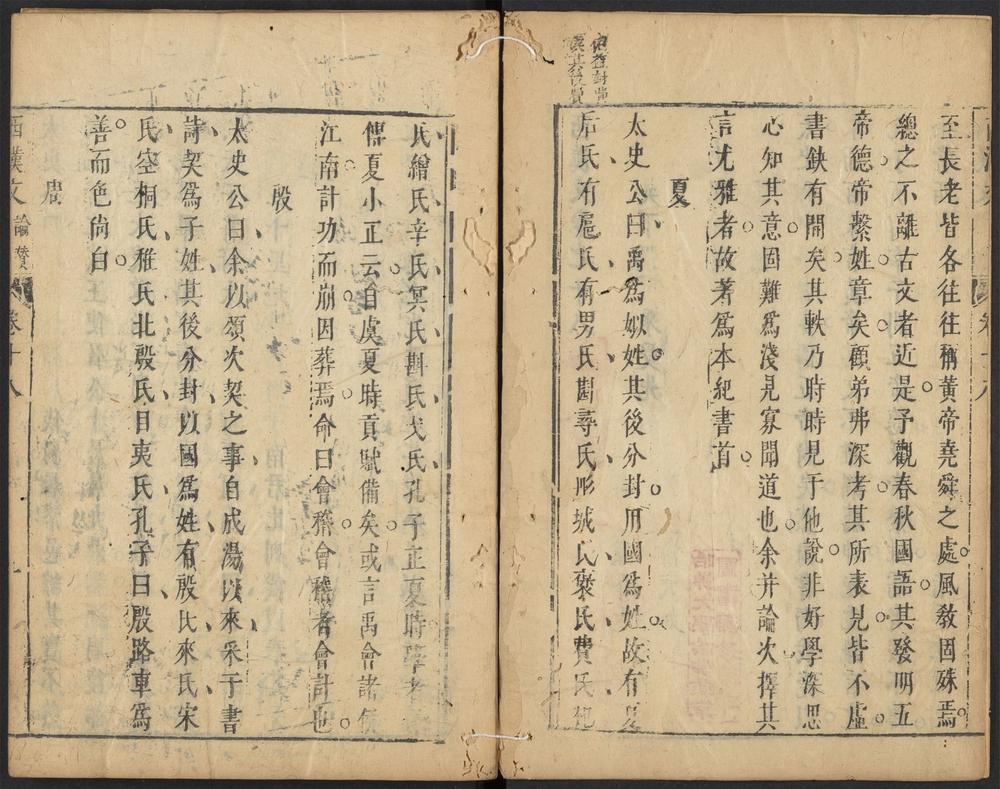 至長老皆各往往稱黃帝堯舜之處風教固殊焉
總之不離古文者近是予觀春秋國語其發明五
帝德帝繫姓章矣顧弟弗深考其所表見皆不虛
書缺有間矣其軼乃時時見于他說非好學深思
心知其意固難爲淺見寡聞道也余并論次擇其
言尤雅者故著爲本紀書首
夏
太史公曰禹爲姒姓其後分封用國爲姓故有夏
后氏有扈氏有男氏斟尋氏彤城氏褒氏費氏杞
氏繒氏辛氏冥氏斟氏戈氏孔子正夏時學者
傳夏小正云自虞夏時貢賦備矣或言禹會諸侯
江南計功而崩因葬焉命曰會稽會稽者會計也
殷
太史公曰余以頌次契之事自成湯以來采于書
詩契爲子姓其後分封以國爲姓有殷氏來氏宋
氏空桐氏稚氏北殷氏目夷氏孔子曰殷路車爲
善而色尚白
周
西漢文 論贊 卷十八